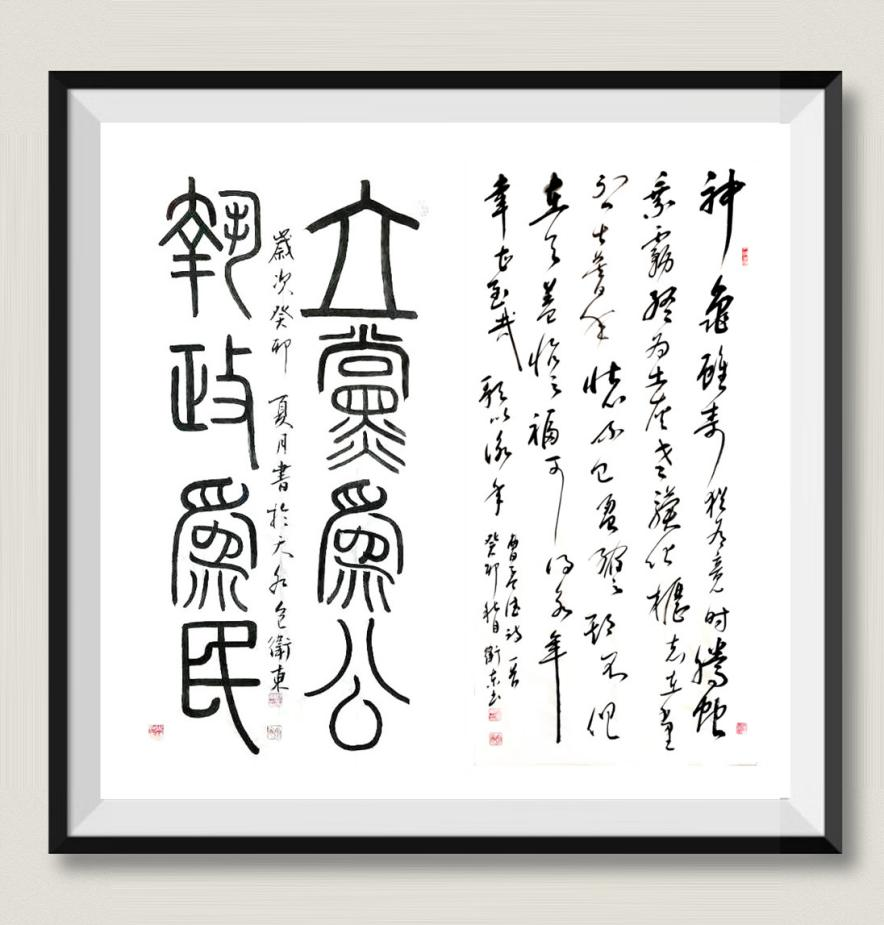 神龜雖壽猶有竟时騰蛇
乘霧終为土灰老骥伏櫪志在千里
烈士暮年壯心不已盈缩之期不但
在天養怡之福可得永年
幸甚至哉歌以詠
曹孟德诗一首
癸卯秋月衛东书
立黨爲公
歲次癸卯夏月書於天水包衛東
執政爲民